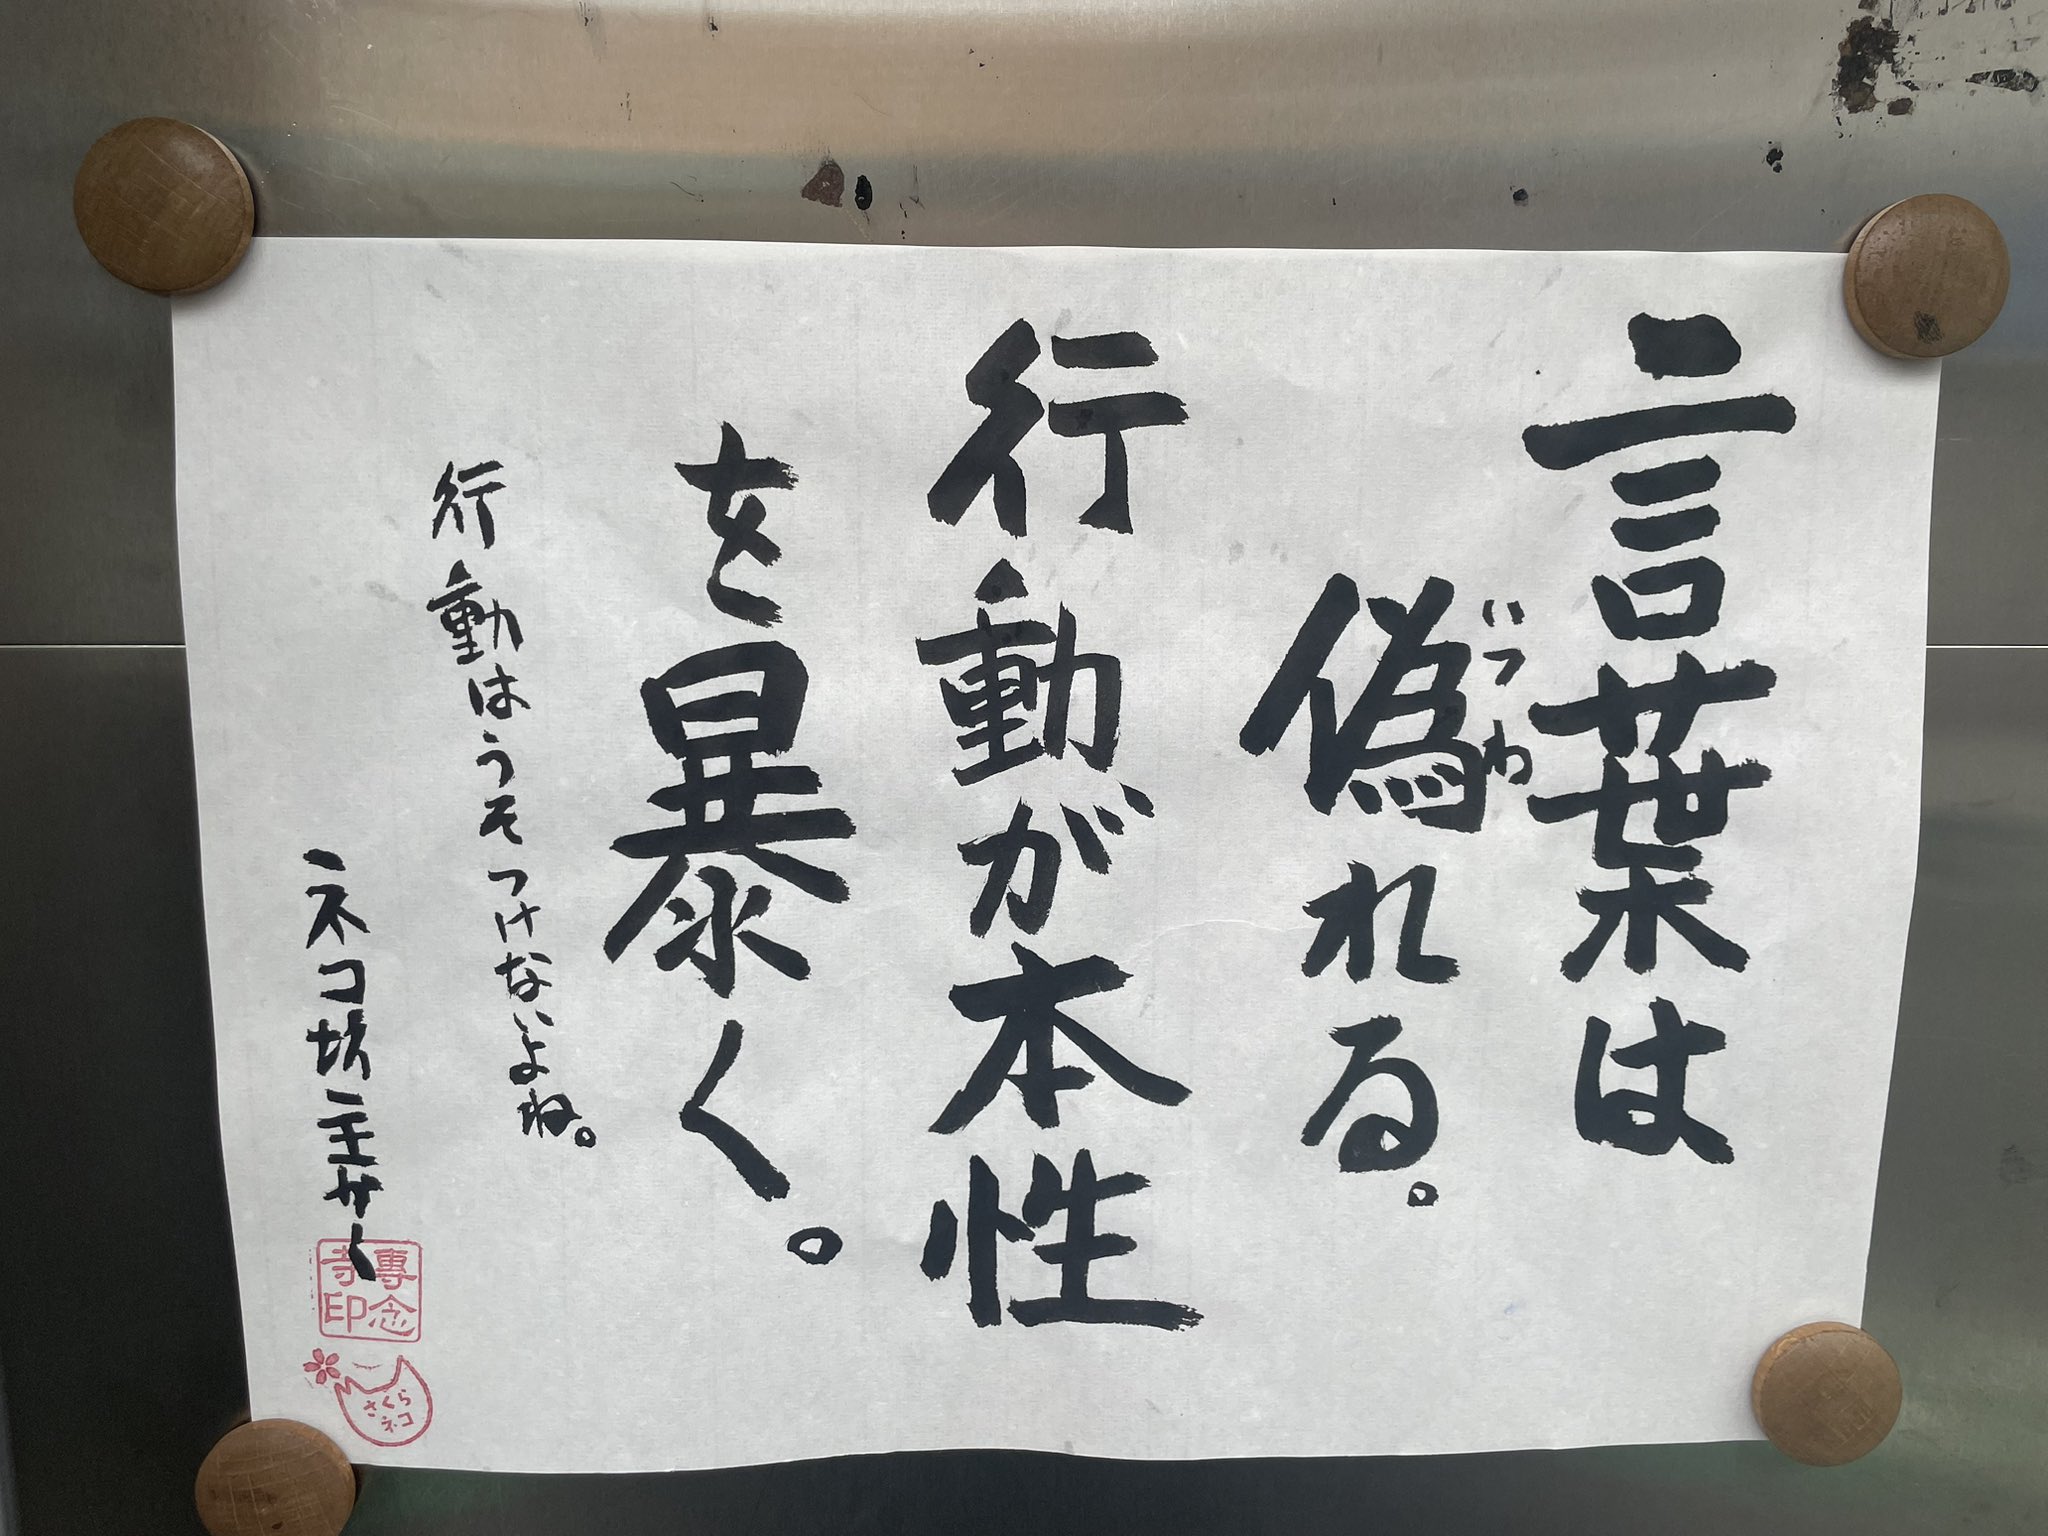 言葉は
偽れる。
いつわ
行動が本性
を暴く。
行動はうそつけないよね。
ネコ坊主サトシ
專念
寺印
さくら
ネコ